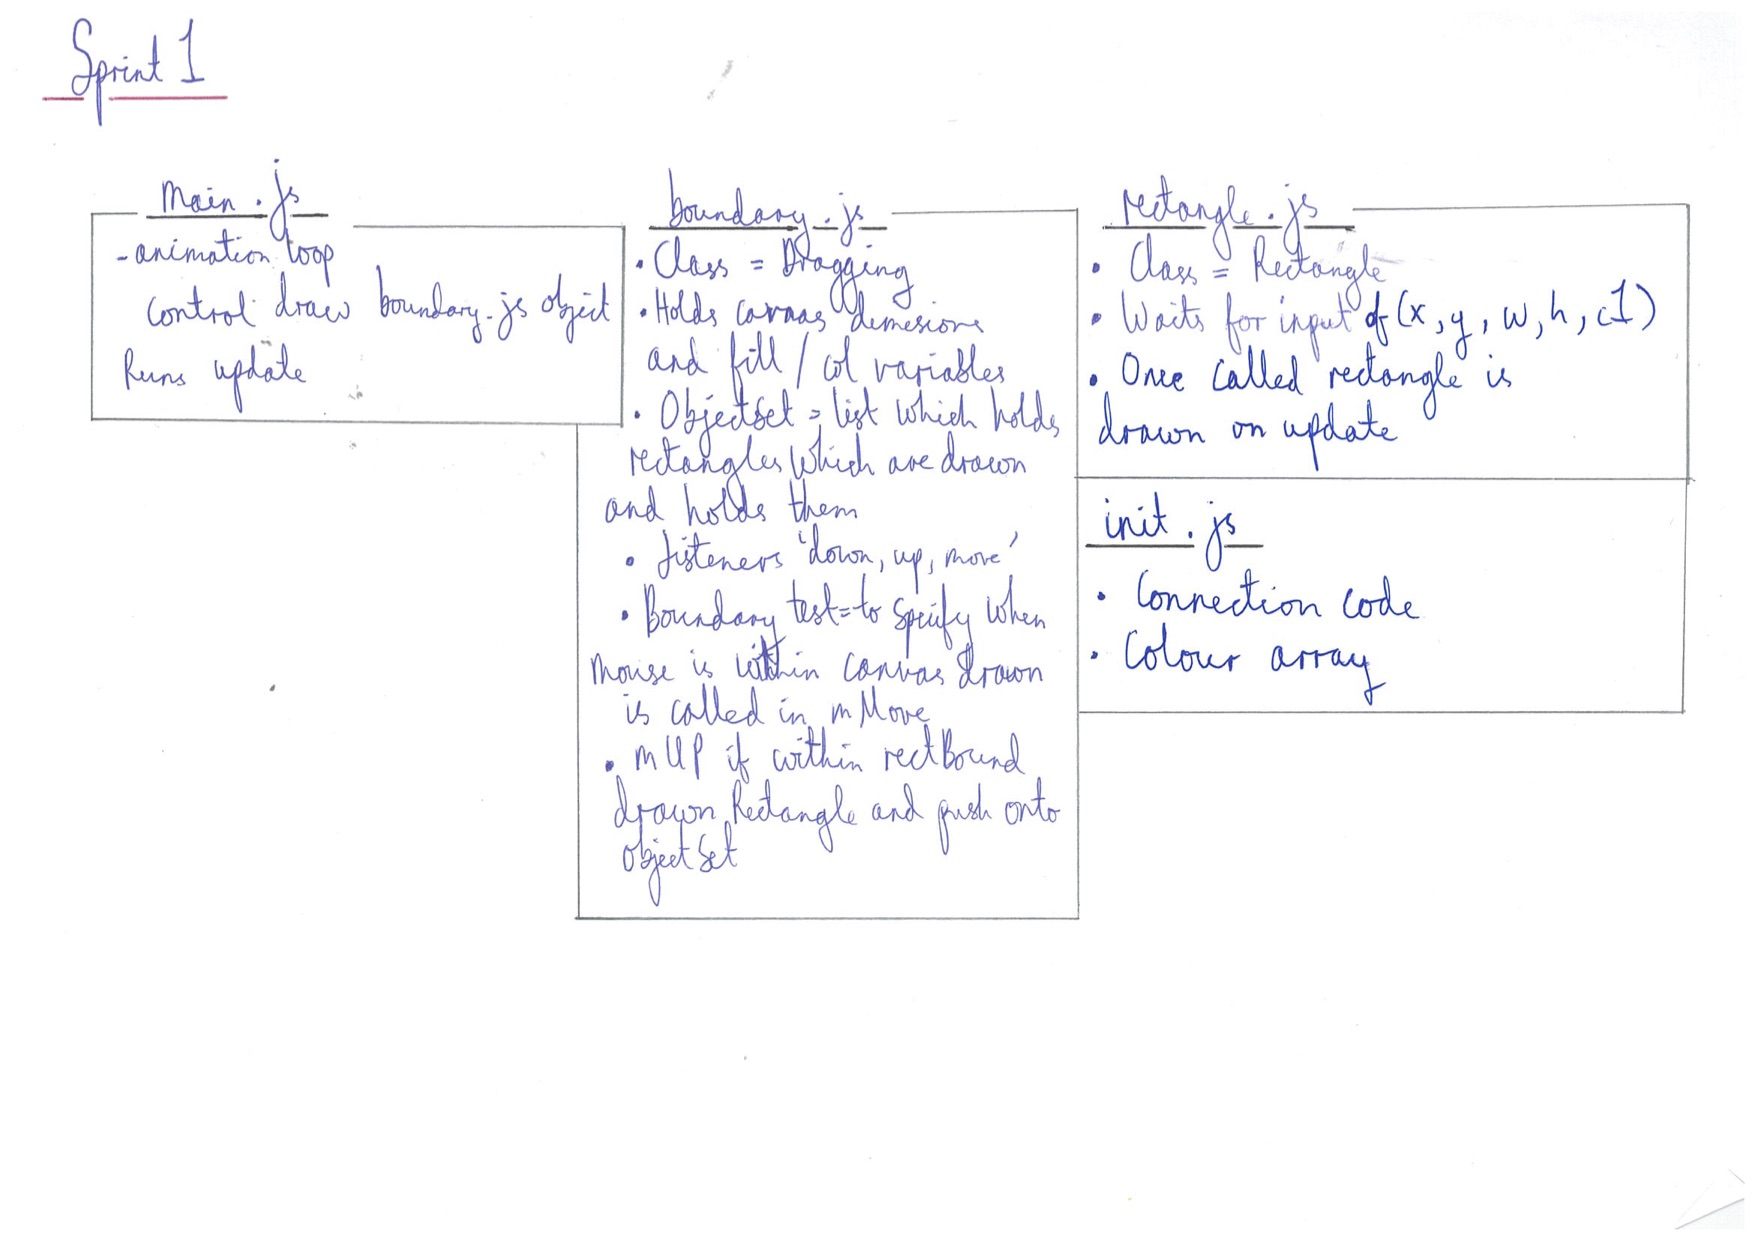 Sprint 1
Main.js
- animation loop
control draw boundary.js object
Runs update
boundary.js
• Class = Dragging
• Holds canvas dimesions
and fill / col variables
• Objectset = list which holds
rectangles which are drawn
and holds them
• Listeners 'down, up, move'
• Boundary test = to specify when
mouse is within canvas drawn
is called in mMove
• mUP if within rectBound
drawn Rectangle and push onto
objectSet
rectangle.js
• Class = Rectangle
• Waits for input of (x, y, w, h, c1)
• Once called rectangle is
drawn on update
init.js
• Connection code
• Colour array